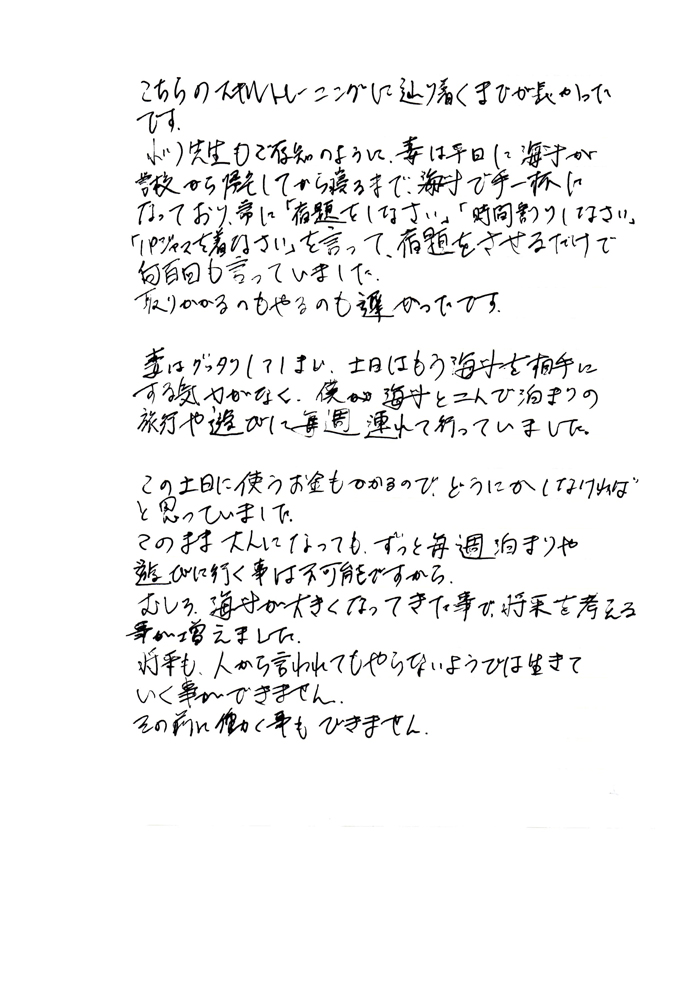 こちらのスキルトレーニングに辿り着くまでが長かった
です。
先生もご存知のように、妻は平日に海斗が
学校から帰宅してから寝るまで、海斗で手一杯に
なっており、常に「宿題をしなさい」「時間割りしなさい」
「パジャマを着なさい」を言って、宿題をさせるだけで
何百回も言っていました。
取りかかるのもやるのも遅かったです。
妻はグッタリしてしまい、土日はもう海斗を相手に
する気力がなく、僕が海斗と二人で泊まりの
旅行や遊びに毎週連れて行っていました。
この土日に使うお金もかかるので、どうにかしなければ
と思っていました。
このまま大人になっても、ずっと毎週泊まりや
遊びに行く事は不可能ですから。
むしろ、海斗が大きくなってきた事で、将来を考える
事が増えました。
将来も、人から言われてもやらないようでは生きて
いく事ができません。
その前に働く事もできません。